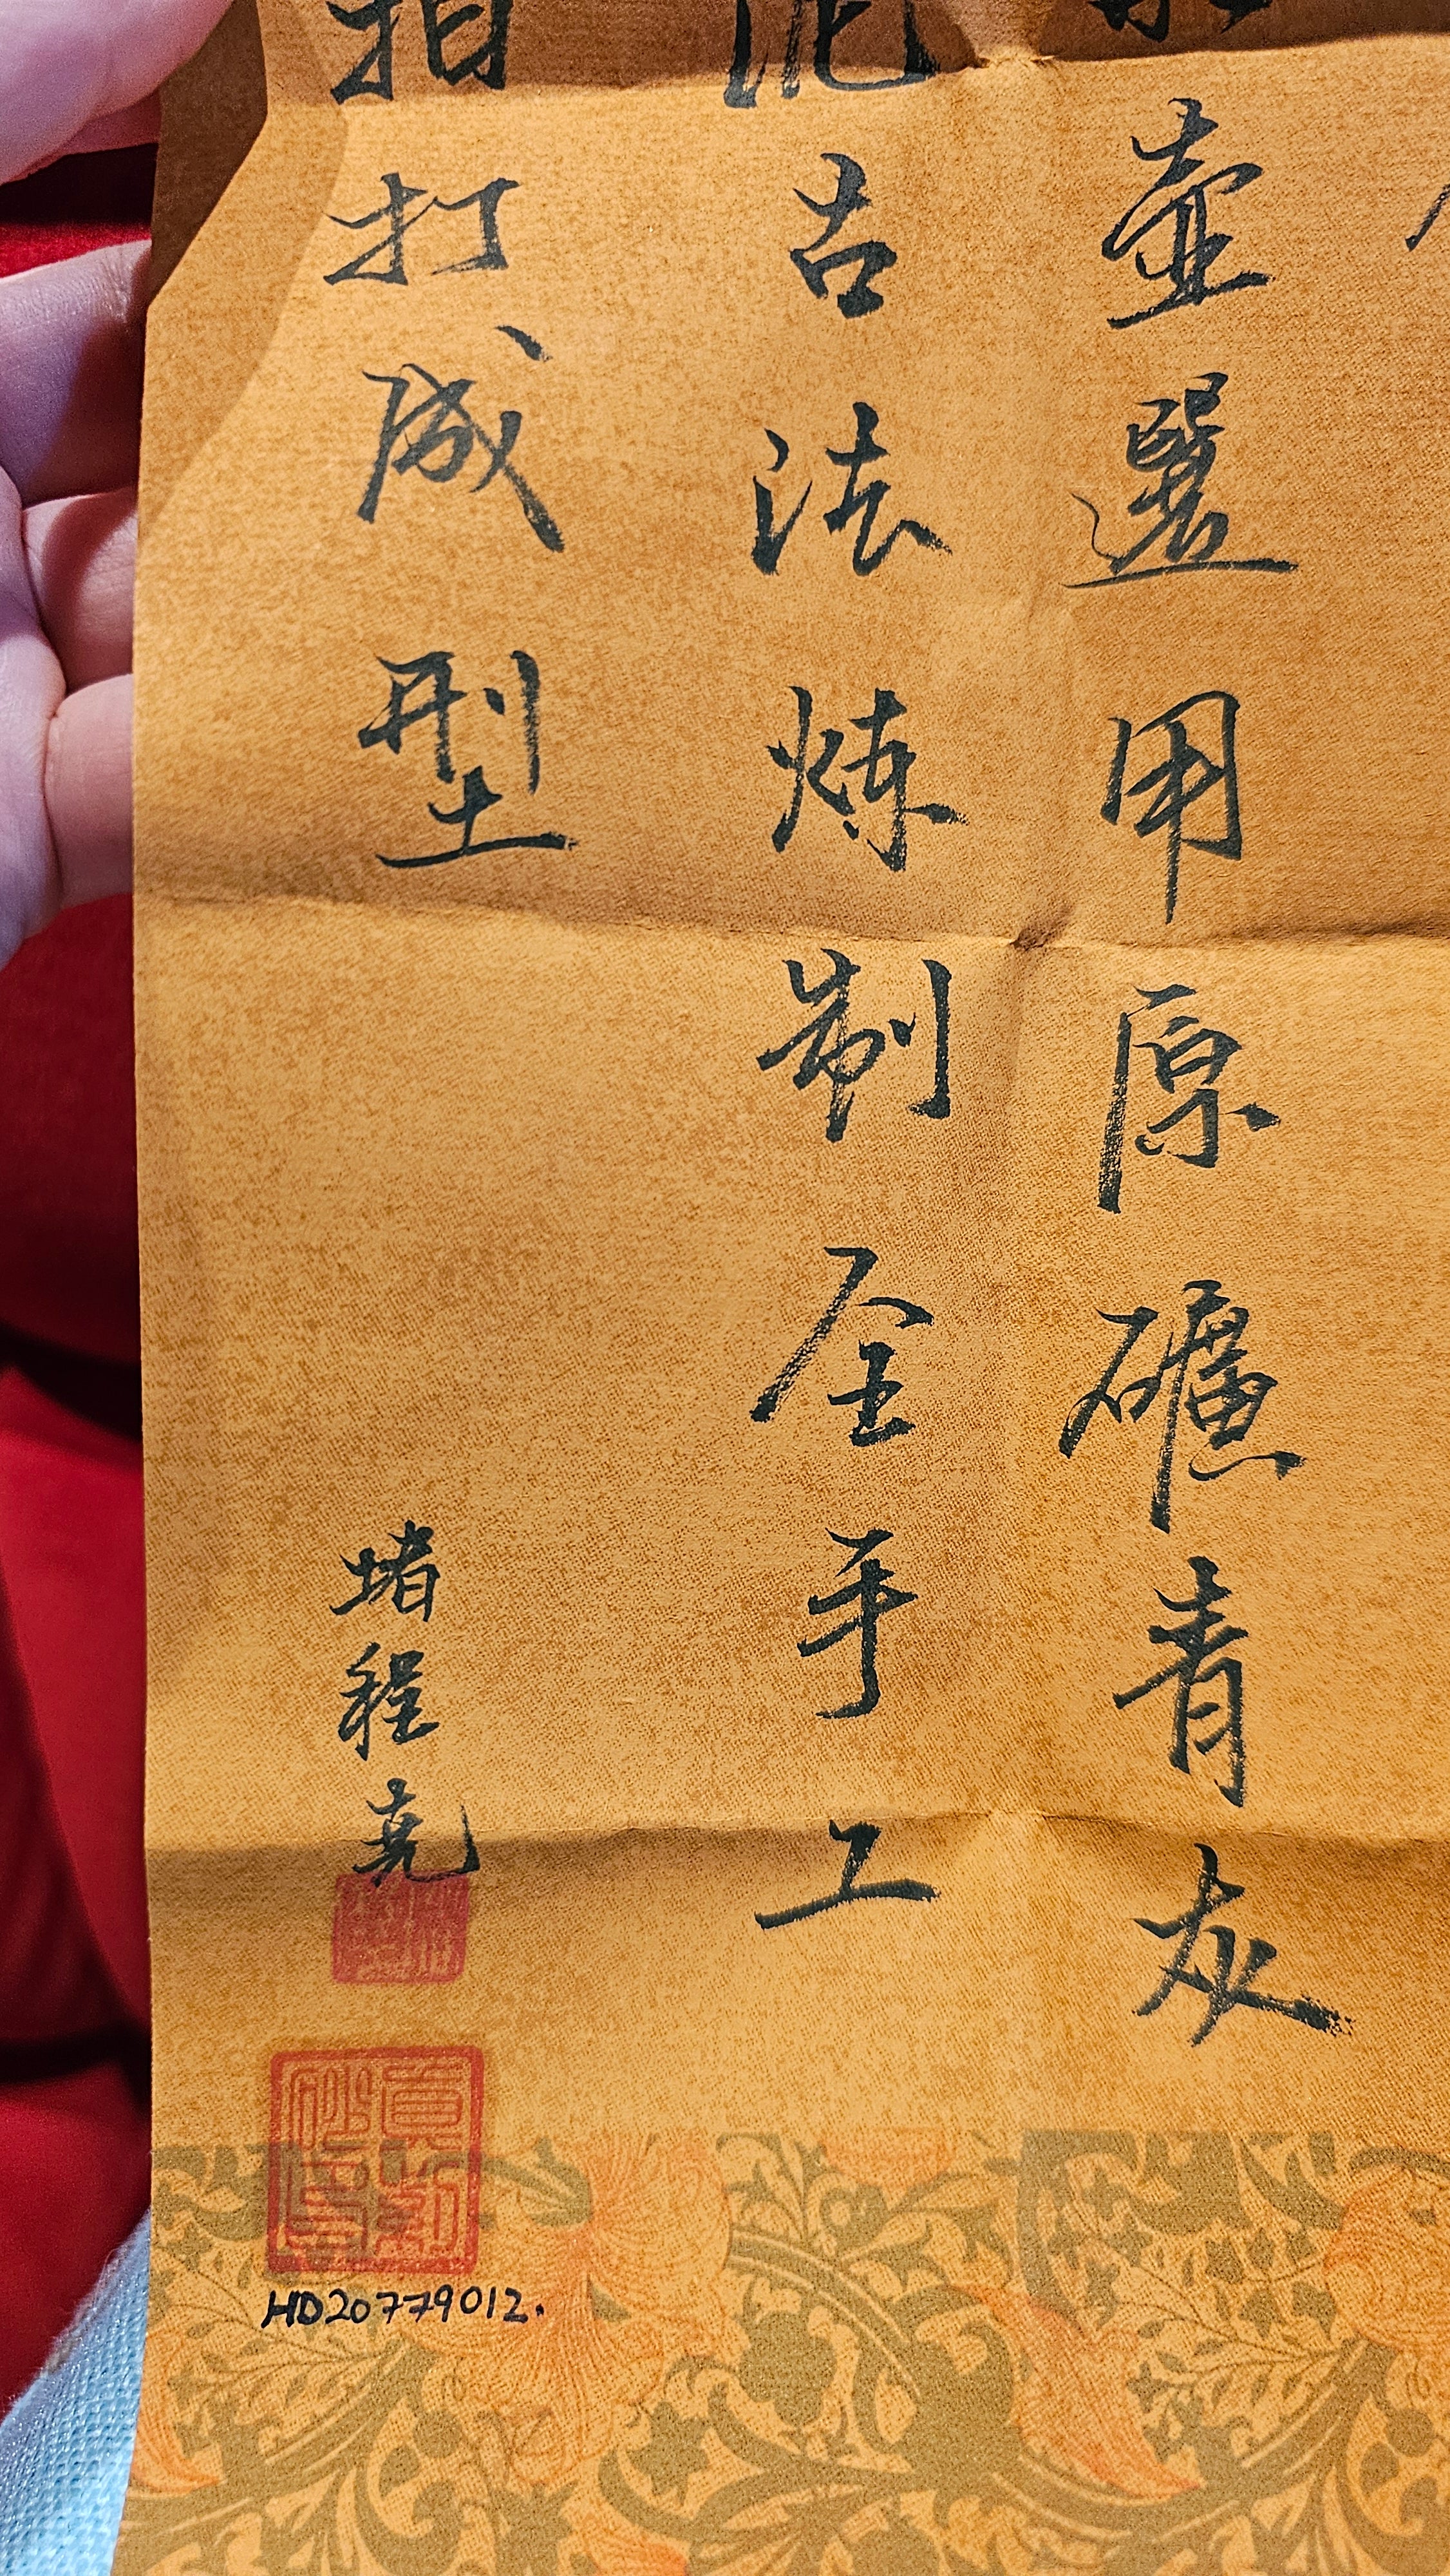 壺選用原礦青灰
泥古法炼制全手工
拍打成型
堵程尭
HD20779012.